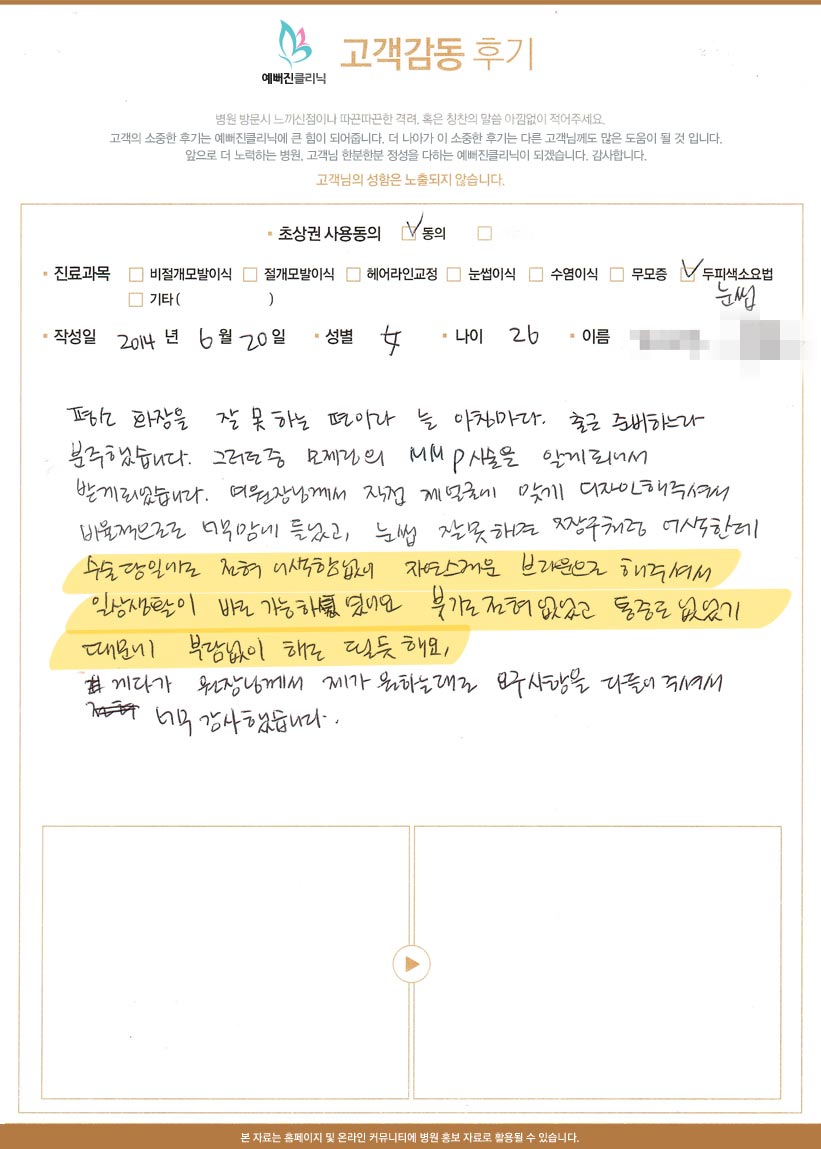 예뻐진클리닉
고객감동 후기
병원 방문시 느끼신점이나 따끈따끈한 격려, 혹은 칭찬의 말씀 아낌없이 적어주세요.
고객의 소중한 후기는 예뻐진클리닉에 큰 힘이 되어줍니다. 더 나아가 이 소중한 후기는 다른 고객님께도 많은 도움이 될 것 입니다.
앞으로 더 노력하는 병원, 고객님 한분한분 정성을 다하는 예뻐진클리닉이 되겠습니다. 감사합니다.
고객님의 성함은 노출되지 않습니다.
초상권 사용동의 동의
진료과목 비절개모발이식 절개모발이식 헤어라인교정 눈썹이식 수염이식 무모증 두피색소요법
기타 ( ) 눈썹
작성일 2014 년 6 월 20 일 성별 女 나이 26 이름
평소 화장을 잘 못하는 편이라 늘 아침마다. 출근 준비하느라
분주했습니다. 그러던중 모제림의 MMP시술을 알게되어서
받게되었습니다. 여원장님께서 직접 제얼굴에 맞게 디자인해주셔서
비율적으로도 너무맘에 들었고, 눈썹 잘못하면 짱구처럼 어색한데
수술당일에도 전혀 어색함없이 자연스러운 브라운으로 해주셔서
일상생활이 바로 가능하였어요 붓기도 전혀 없었고 통증도 없었기
때문에 부담없이 해도 될듯 해요,
게다가 원장님께서 제가 원하는대로 요구사항을 다들어 주셔서
너무 감사했습니다.
본 자료는 홈페이지 및 온라인 커뮤니티에 병원 홍보 자료로 활용될 수 있습니다.